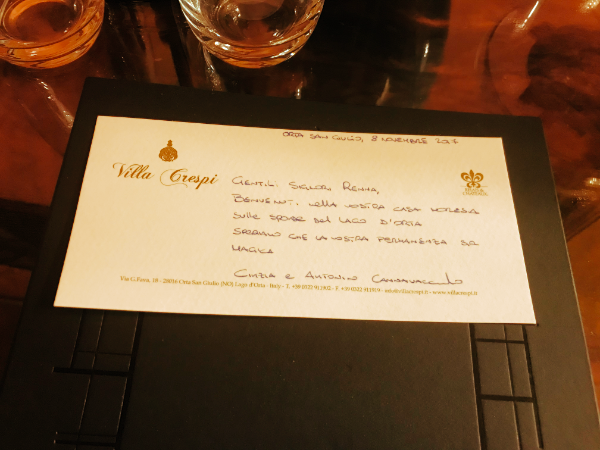 Orta San Giulio, 8 novembre 2017
Villa Crespi
Gentili Signori Renna,
Benvenuti nella nostra casa
sulle sponde del Lago d'Orta
speriamo che la vostra permanenza sia
magica
Cinzia e Antonino Cannavacciuolo
Via G. Fava, 18 - 28016 Orta San Giulio (NO) Lago d'Orta - Italy - T. +39 0322 911902 - F. +39 0322 911919 - info@villacrespi.it - www.villacrespi.it